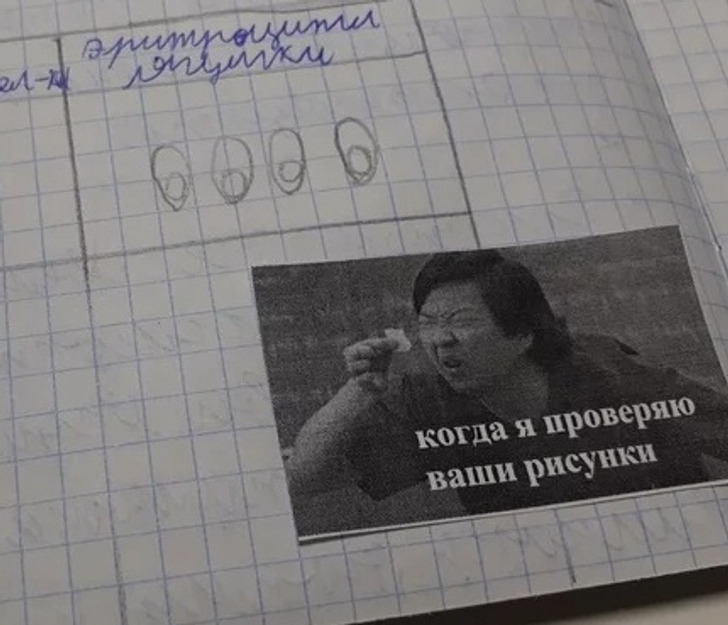 эритроциты
лягушки
когда я проверяю
ваши рисунки